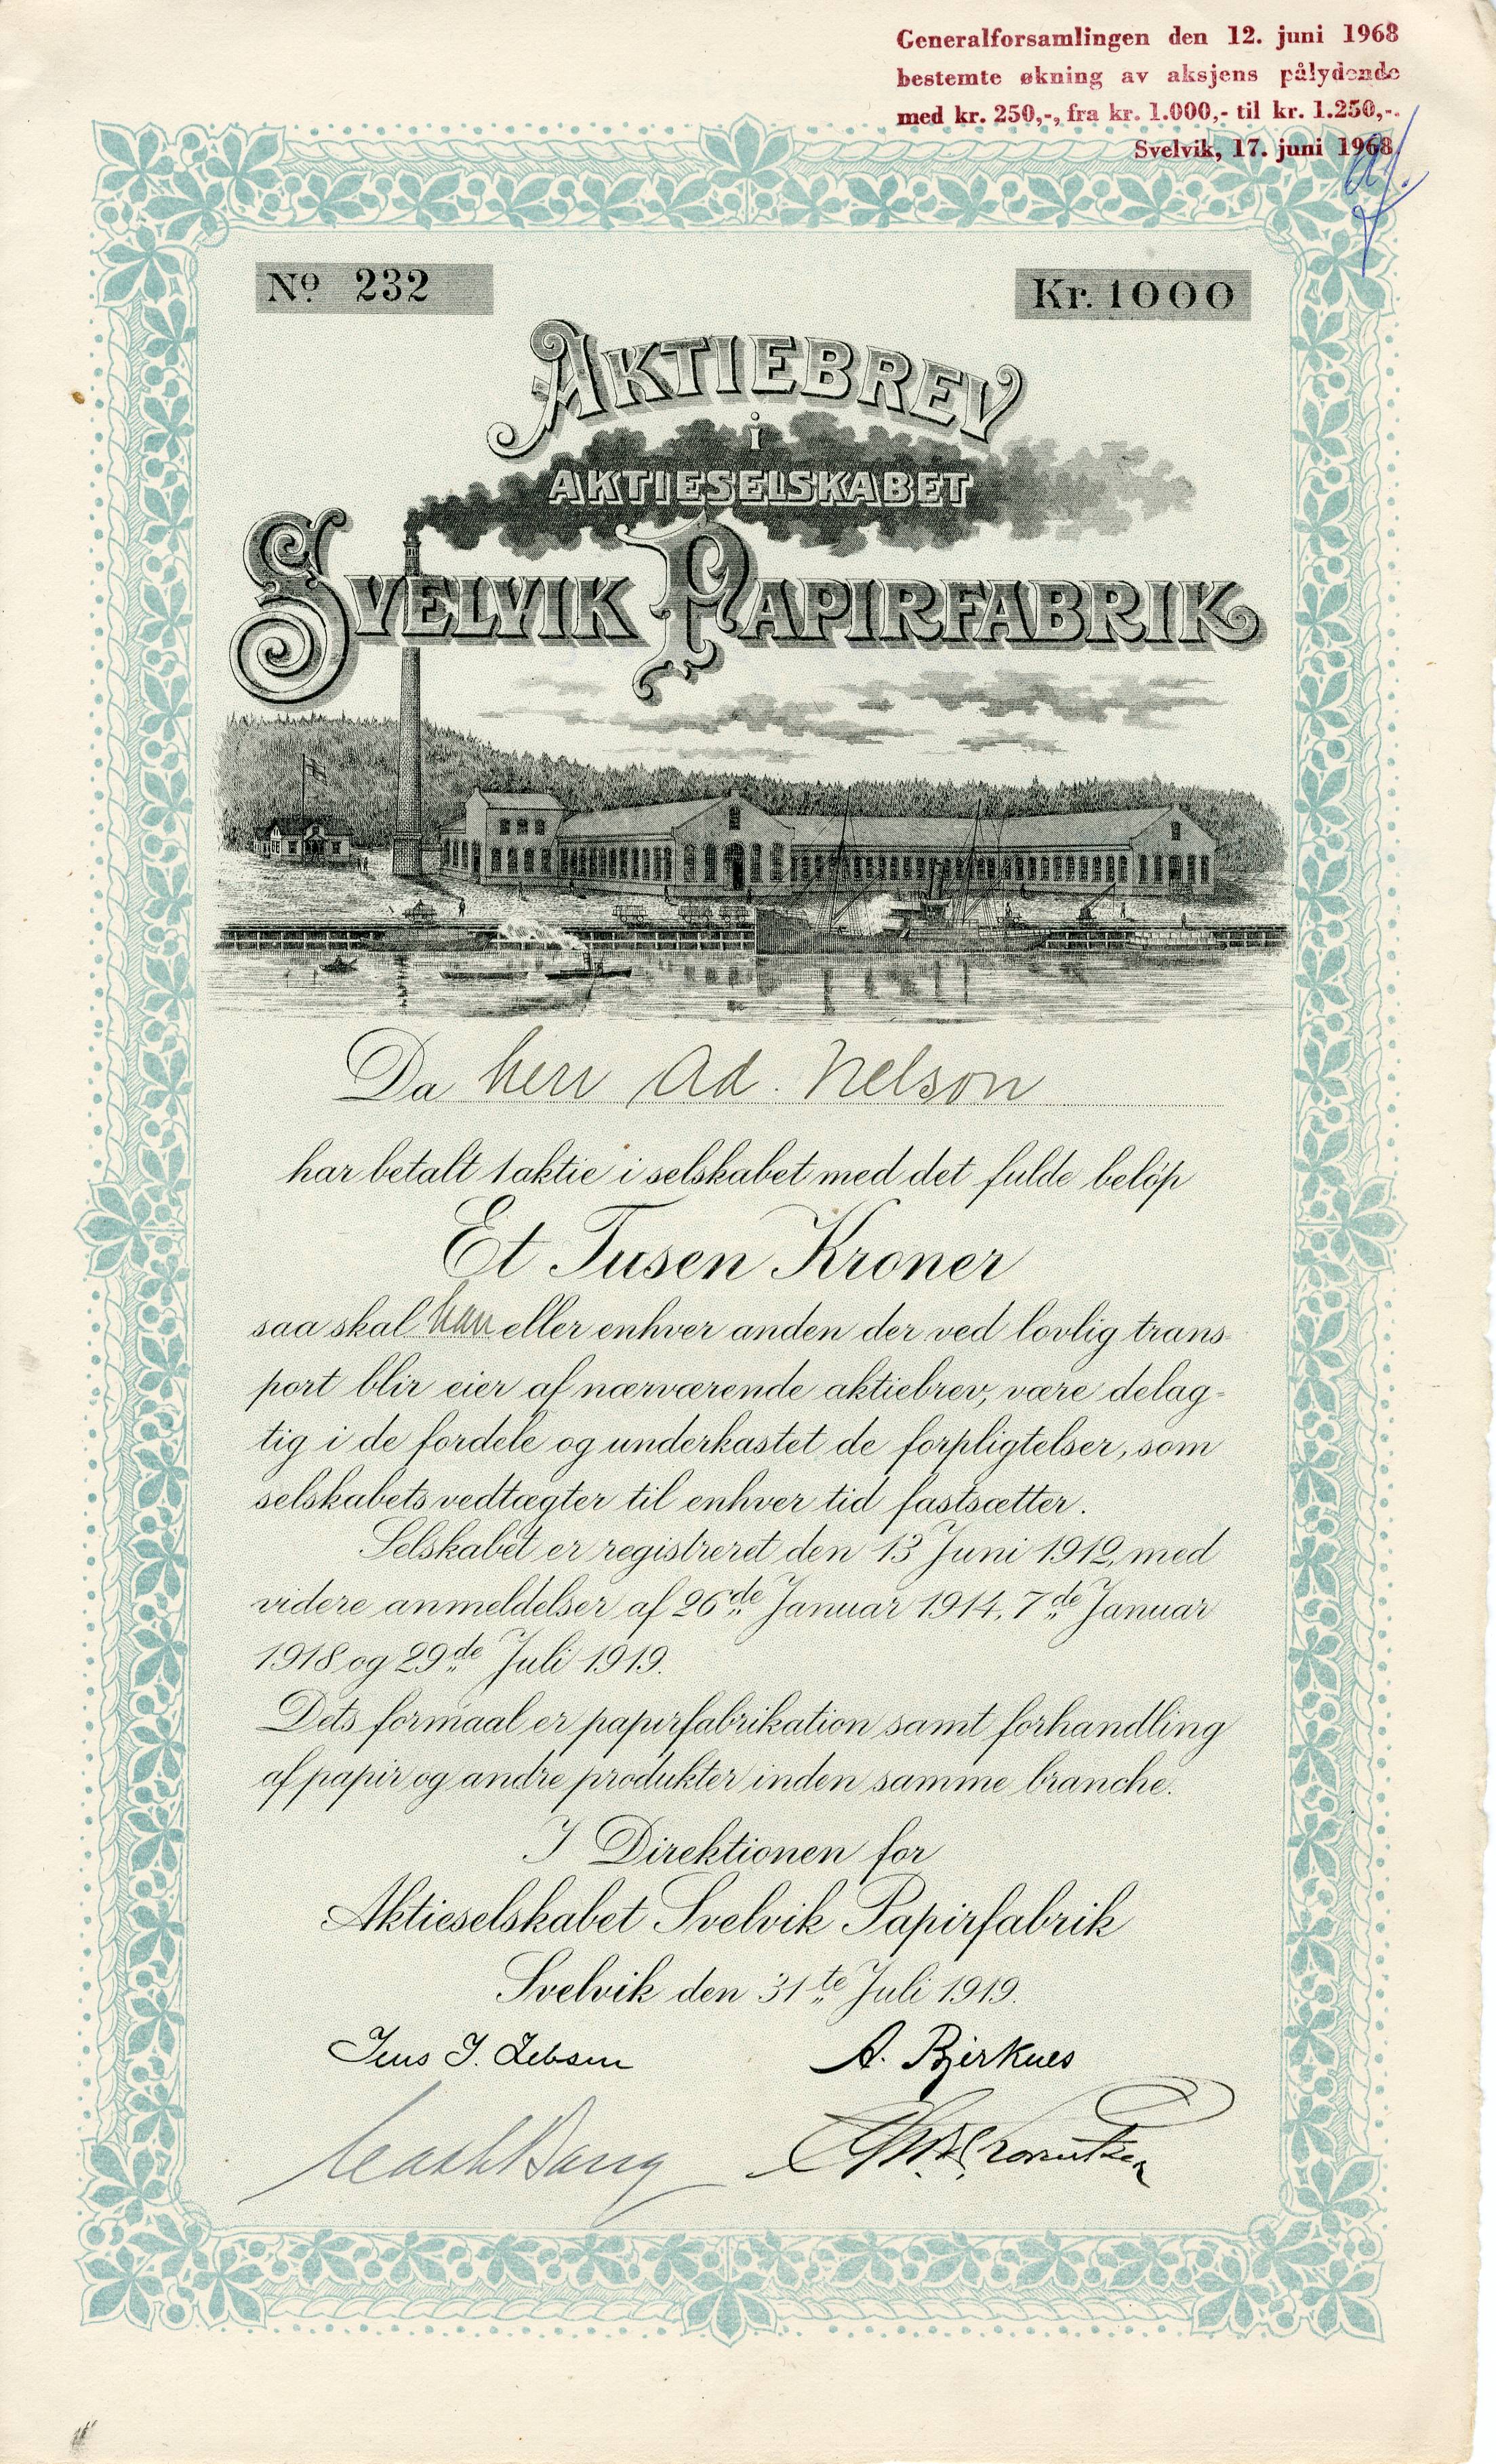 Generalforsamlingen den 12. juni 1968
bestemte økning av aksjens pålydende
med kr. 250,-, fra kr. 1.000,- til kr. 1.250,-.
Svelvik, 17. juni 1968.
No 232
Kr. 1000
AKTIEBREV
i
AKTIESELSKABET
SVELVIK PAPIRFABRIK
Da herr Ad. Nelson
har betalt 1 aktie i selskabet med det fulde beløp
Et Tusen Kroner
saa skal han eller enhver anden der ved lovlig trans-
port blir eier af nærværende aktiebrev, være delag-
tig i de fordele og underkastet de forpligtelser, som
selskabets vedtægter til enhver tid fastsætter.
Selskabet er registreret den 13 Juni 1912, med
videre anmeldelser af 26de Januar 1914, 7de Januar
1918 og 29de Juli 1919.
Dets formaal er papirfabrikation samt forhandling
af papir og andre produkter inden samme branche.
I Direktionen for
Aktieselskabet Svelvik Papirfabrik
Svelvik den 31te Juli 1919.
Jens J. Jebsen
A. Bjerknes